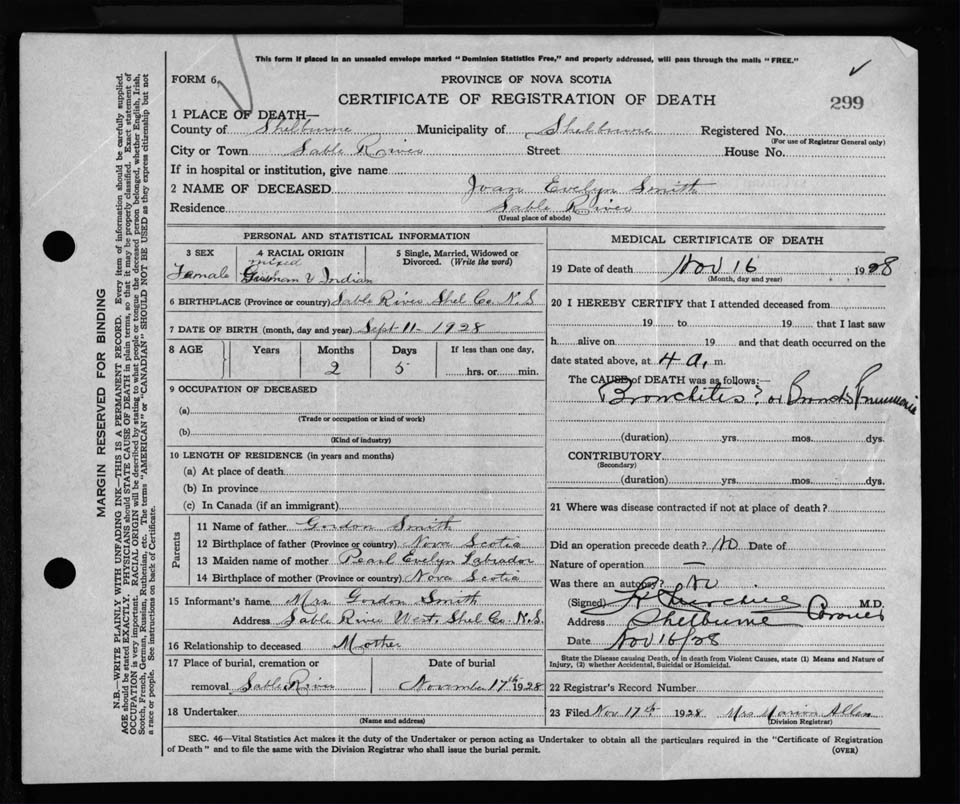 This form if placed in an unsealed envelope marked "Dominion Statistics Free," and properly addressed, will pass through the mails "FREE."
FORM 6
PROVINCE OF NOVA SCOTIA
299
CERTIFICATE OF REGISTRATION OF DEATH
1 PLACE OF DEATH—
County of Shelburne Municipality of Shelburne Registered No.
(For use of Registrar General only)
City or Town Sable River Street House No.
If in hospital or institution, give name
2 NAME OF DECEASED Joan Evelyn Smith
Residence Sable River
(Usual place of abode)
PERSONAL AND STATISTICAL INFORMATION
3 SEX 4 RACIAL ORIGIN 5 Single, Married, Widowed or Divorced. (Write the word)
mixed
Female German & Indian
6 BIRTHPLACE (Province or country) Sable River Shel Co. N.S
7 DATE OF BIRTH (month, day and year) Sept 11 - 1928
8 AGE Years Months Days If less than one day,
2 5 hrs. or min.
9 OCCUPATION OF DECEASED
(a)
(Trade or occupation or kind of work)
(b)
(Kind of industry)
10 LENGTH OF RESIDENCE (in years and months)
(a) At place of death
(b) In province
(c) In Canada (if an immigrant)
Parents
11 Name of father Gordon Smith
12 Birthplace of father (Province or country) Nova Scotia
13 Maiden name of mother Pearl Evelyn Labrador
14 Birthplace of mother (Province or country) Nova Scotia
15 Informant's name Mrs Gordon Smith
Address Sable River West, Shel Co. N.S.
16 Relationship to deceased Mother
17 Place of burial, cremation or Date of burial
removal Sable River November 17th 1928
18 Undertaker
(Name and address)
MEDICAL CERTIFICATE OF DEATH
19 Date of death Nov 16 1928
(Month, day and year)
20 I HEREBY CERTIFY that I attended deceased from
19 to 19 that I last saw
h alive on 19 and that death occurred on the
date stated above, at 4 a. m.
The CAUSE of DEATH was as follows:—
Bronchites? or Broncho Pneumonia
(duration) yrs. mos. dys.
CONTRIBUTORY
(Secondary)
(duration) yrs. mos. dys.
21 Where was disease contracted if not at place of death?
Did an operation precede death? No Date of
Nature of operation —
Was there an autopsy? No
(Signed) M.D.
Address Shelburne Coroner
Date Nov 16/28
State the Disease causing Death, or in death from Violent Causes, state (1) Means and Nature of
Injury, (2) whether Accidental, Suicidal or Homicidal.
22 Registrar's Record Number
23 Filed Nov 17th 1928 Mrs Marion Allen
(Division Registrar)
SEC. 46—Vital Statistics Act makes it the duty of the Undertaker or person acting as Undertaker to obtain all the particulars required in the "Certificate of Registration
of Death" and to file the same with the Division Registrar who shall issue the burial permit. (OVER)
MARGIN RESERVED FOR BINDING
N.B.—WRITE PLAINLY WITH UNFADING INK—THIS IS A PERMANENT RECORD. Every item of information should be carefully supplied.
AGE should be stated EXACTLY. PHYSICIANS should STATE CAUSE OF DEATH in plain terms, so that it may be properly classified. Exact statement of
OCCUPATION is very important. RACIAL ORIGIN will be described by stating to what people or tongue the deceased person belonged, whether English, Irish,
Scotch, French, German, Russian, Ruthenian, etc. The terms "AMERICAN" or "CANADIAN" SHOULD NOT BE USED as they express citizenship but not
a race or people. See instructions on back of Certificate.